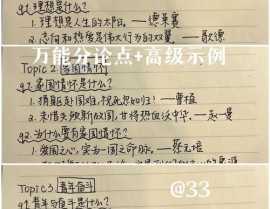 q1.理想是什么?
1.理想是人生的太阳。——德莱塞
2.志向和热爱是伟大行为的双翼。——歌德
万能分论点+高级示例
Topic 2.家国情怀
q1.家国情怀是什么?
1.捐躯赴国难,视死忽如归!——曹植
2.未惜头颅新故国,甘将热血沃中华。——赵一曼
q2.为什么要有家国情怀?
1.爱国之心,实为一国之命脉。——蔡元培
Topic3.青年奋斗
@33
q1.青年与奋斗是什么?